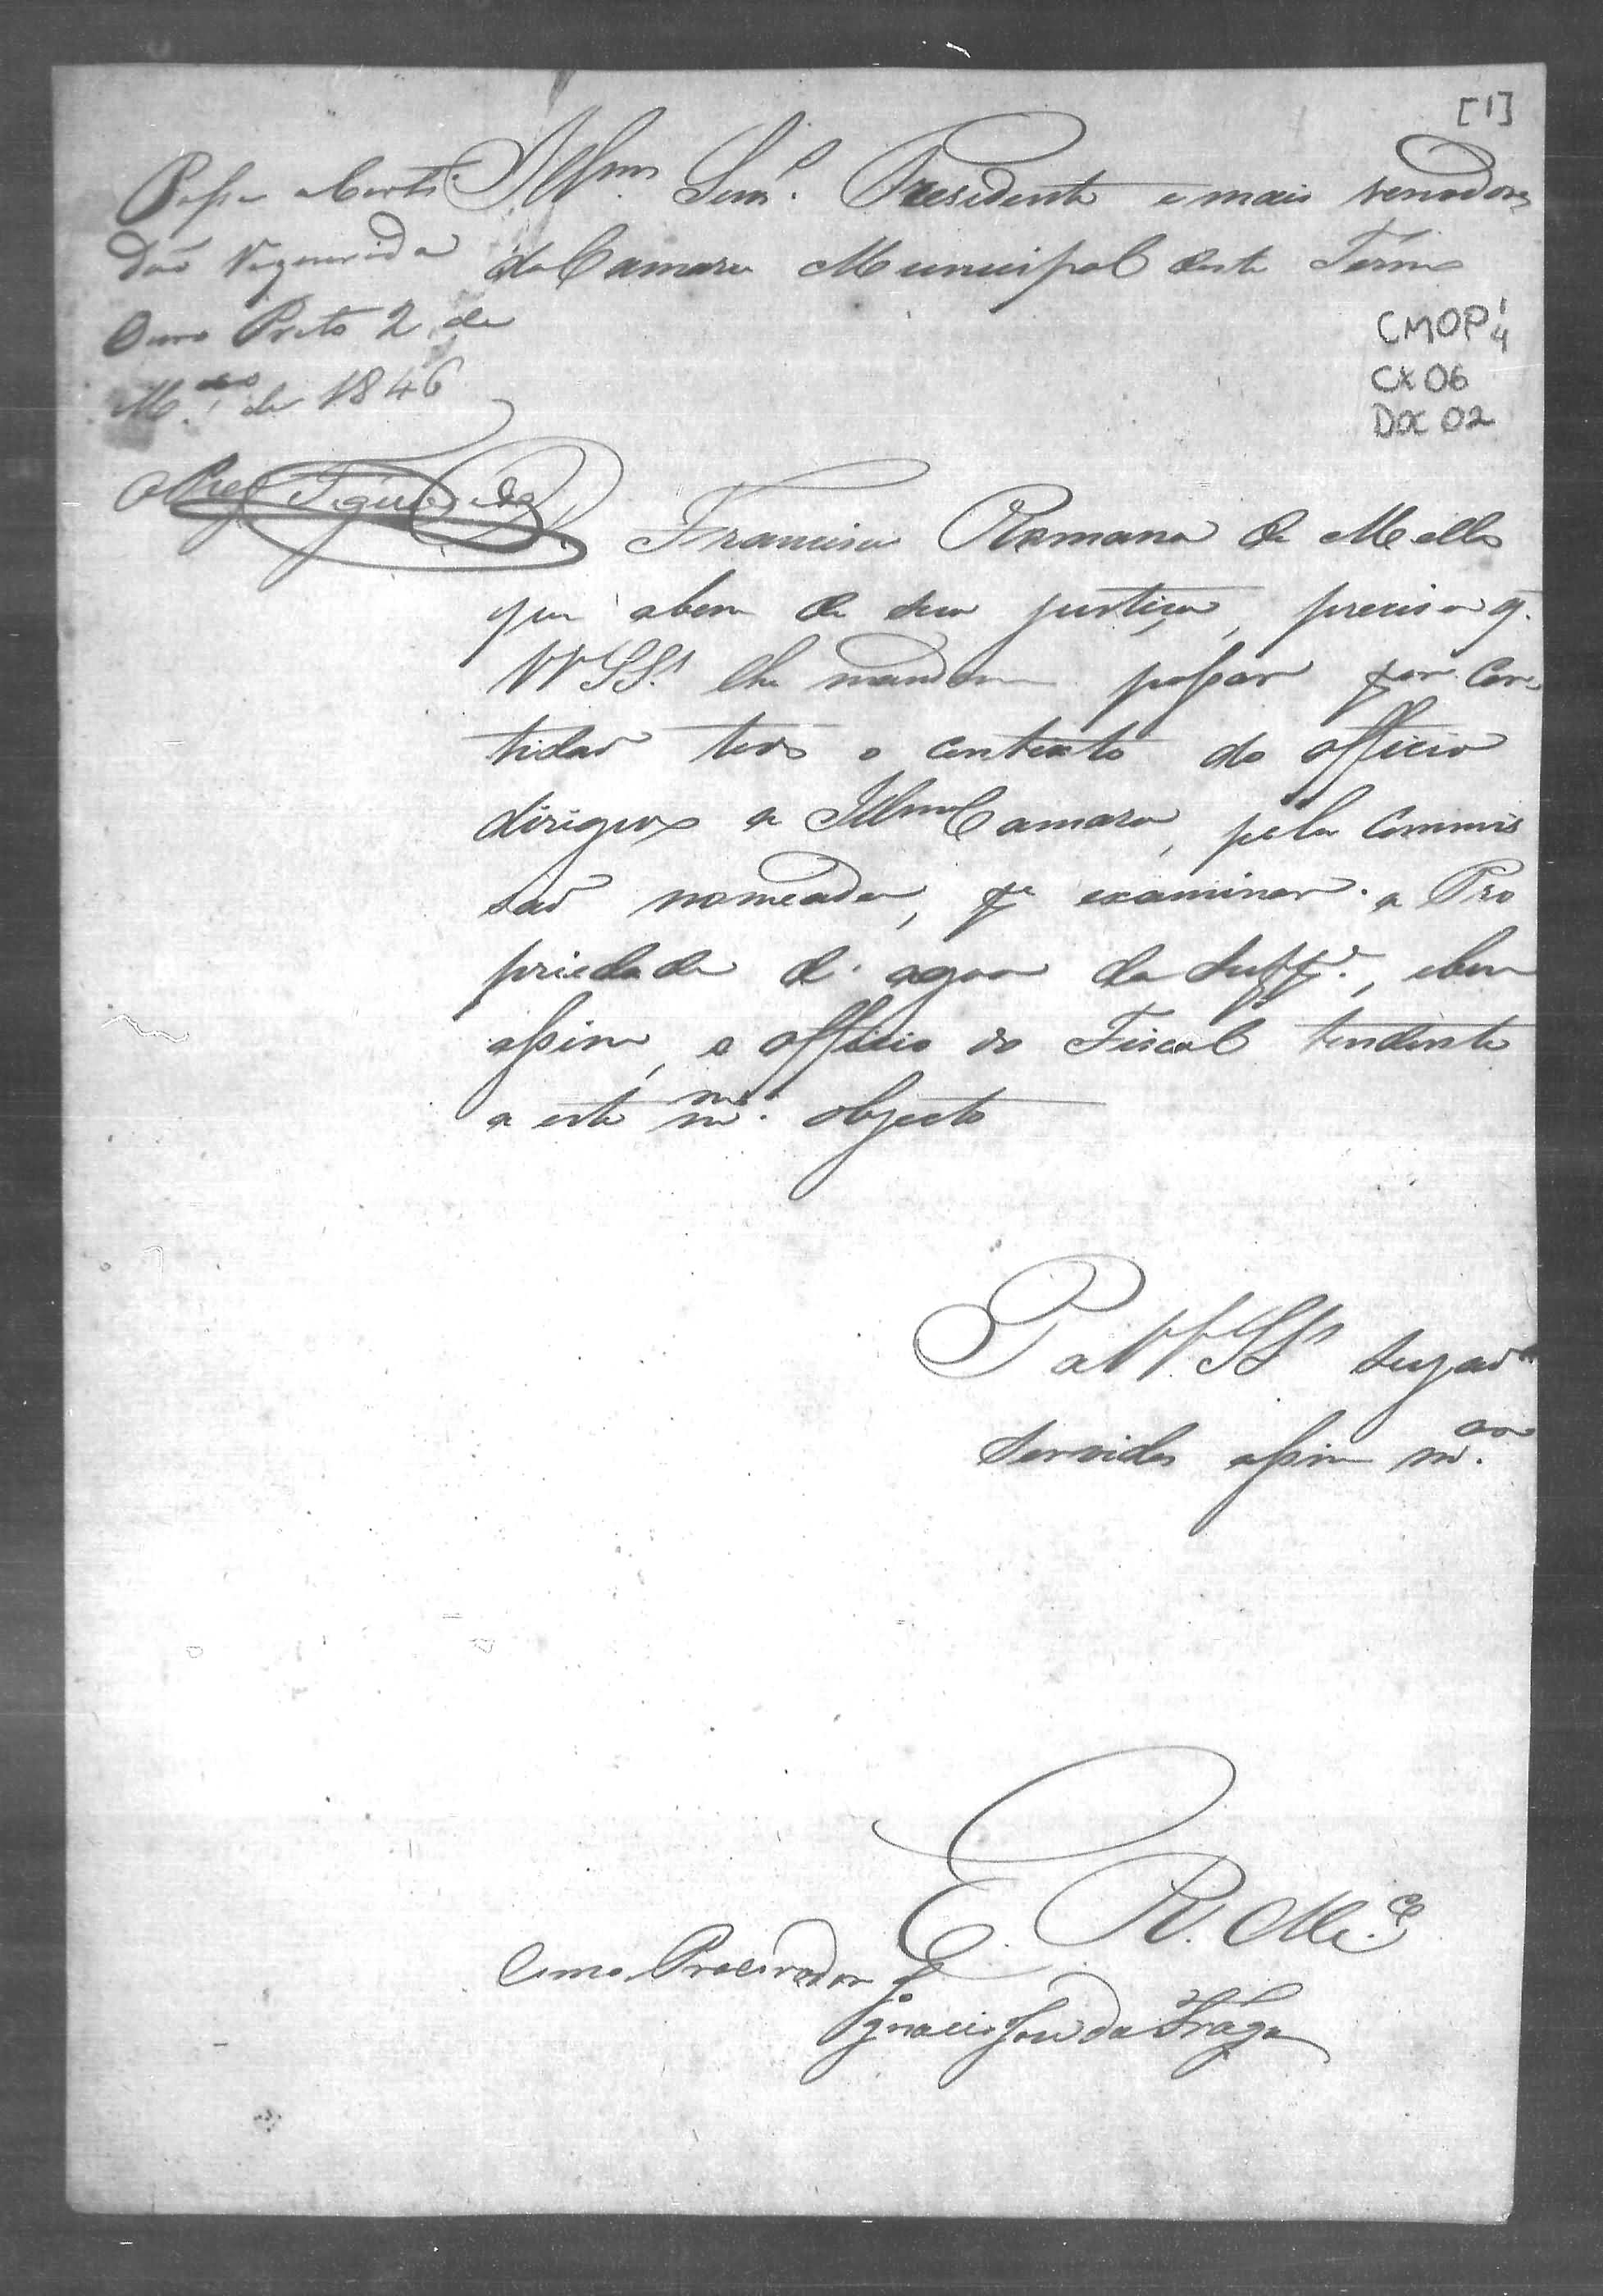 [1]
Passe a Certi
dão requerida
Ouro Preto 2 de
M.ço de 1846
Illmos Senr.s Presidente e mais veriadores
da Camara Municipal deste Termo
CMOP 1/4
CX 06
DOC 02
Francisca Romana de Mello
que abem de sua justiça, precisa q.
VVSS.as lhe mandem passar por Cer
tidaõ todo o contexto do officio
dirigido a Illma Camara, pela Commis
saõ nomeada, pa examinar a Pro
priedade d'agoa da Supp.e, ebem
assim, o officio do Fiscal tendente
a este m.mo objecto
P a VV.SSas sejaõ
servidos assim m.ar
E. R. M.ce
Como Procurador
Ignacio José da Fraga